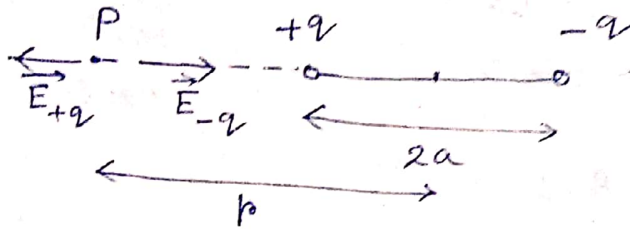 P
+q
-q
E+q
E-q
2a
p